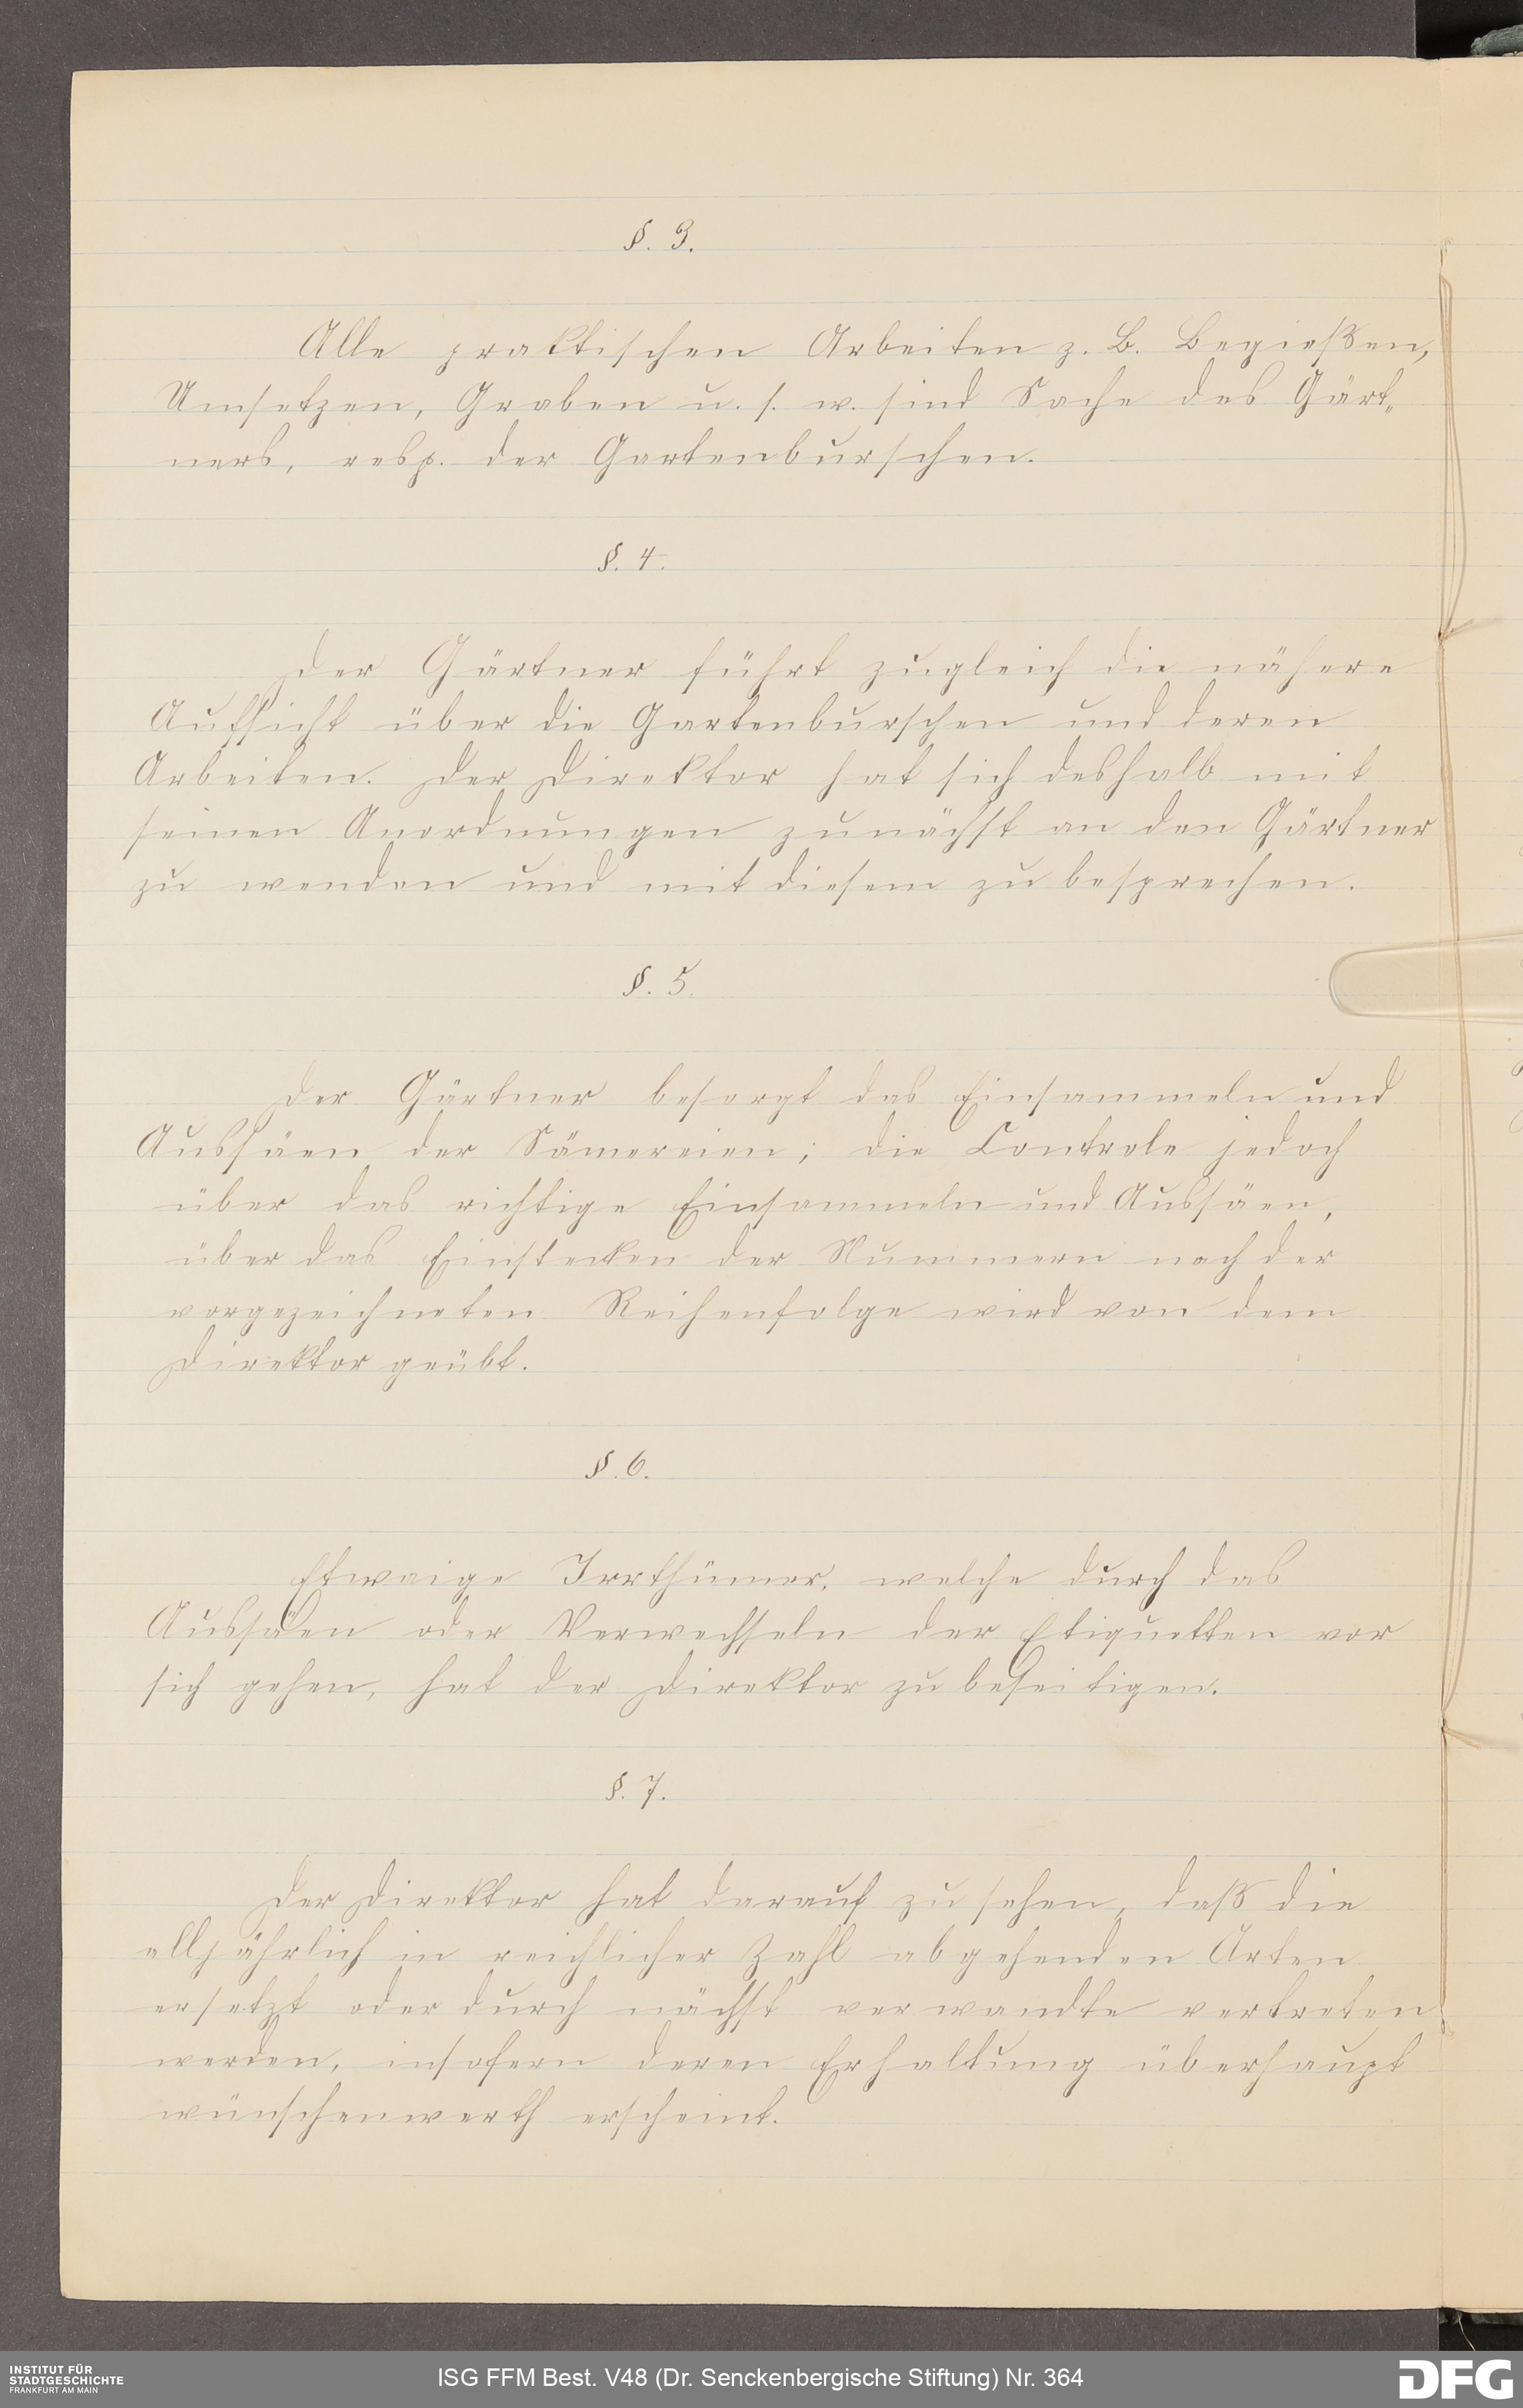 §. 3.
Alle praktischen Arbeiten z. B. Begießen,
Umsetzen, Graben u. s. w. sind Sache des Gärt„
ners, resp. der Gartenburschen.
§. 4.
Der Gärtner führt zugleich die nähere
Aufsicht über die Gartenburschen und deren
Arbeiten. Der Direktor hat sich deshalb mit
seinen Anordnungen zunächst an den Gärtner
zu wenden und mit diesem zu besprechen.
§. 5.
Der Gärtner besorgt das Einsammeln und
Aussäen der Sämereien; die Controle jedoch
über das richtige Einsammeln und Aussäen,
über das Einstecken der Nummern nach der
vorgezeichneten Reihenfolge wird von dem
Direktor geübt.
§. 6.
Etwaige Irrthümer, welche durch das
Aussäen oder Verwechseln der Etiquetten vor
sich gehen, hat der Direktor zu beseitigen.
§. 7.
Der Direktor hat darauf zu sehen, daß die
alljährlich in reichlicher Zahl abgehenden Arten
ersetzt oder durch nächst verwandte vertreten
werden, insofern deren Erhaltung überhaupt
wünschenwerth erscheint.
INSTITUT FÜR
STADTGESCHICHTE
FRANKFURT AM MAIN
ISG FFM Best. V48 (Dr. Senckenbergische Stiftung) Nr. 364
DFG